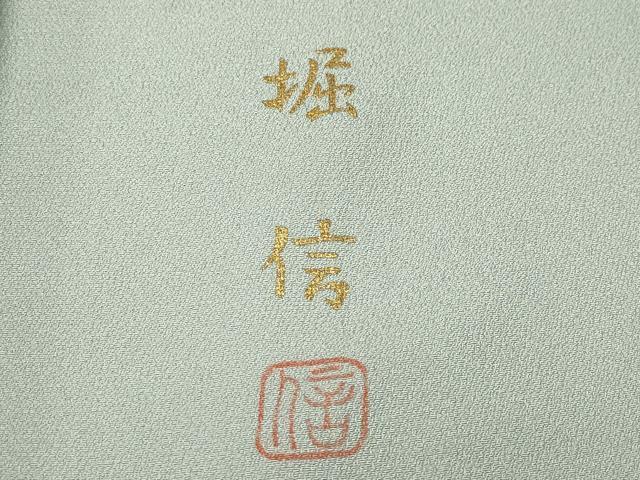 堀
信
信